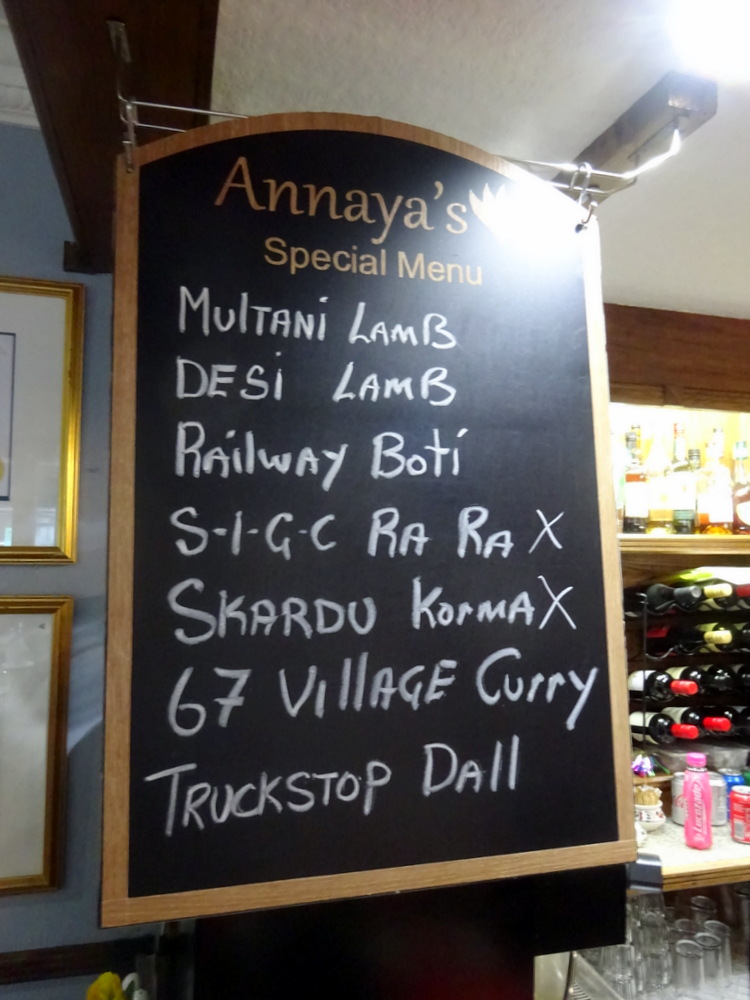 Annaya's
Special Menu
MulTANi LAmB
DESi LAmB
RAilwAy Boti
S-I-G-C RA RA X
SKARDU KormA X
67 VillAGE Curry
TRUCKSTOP DAll
Lucozade